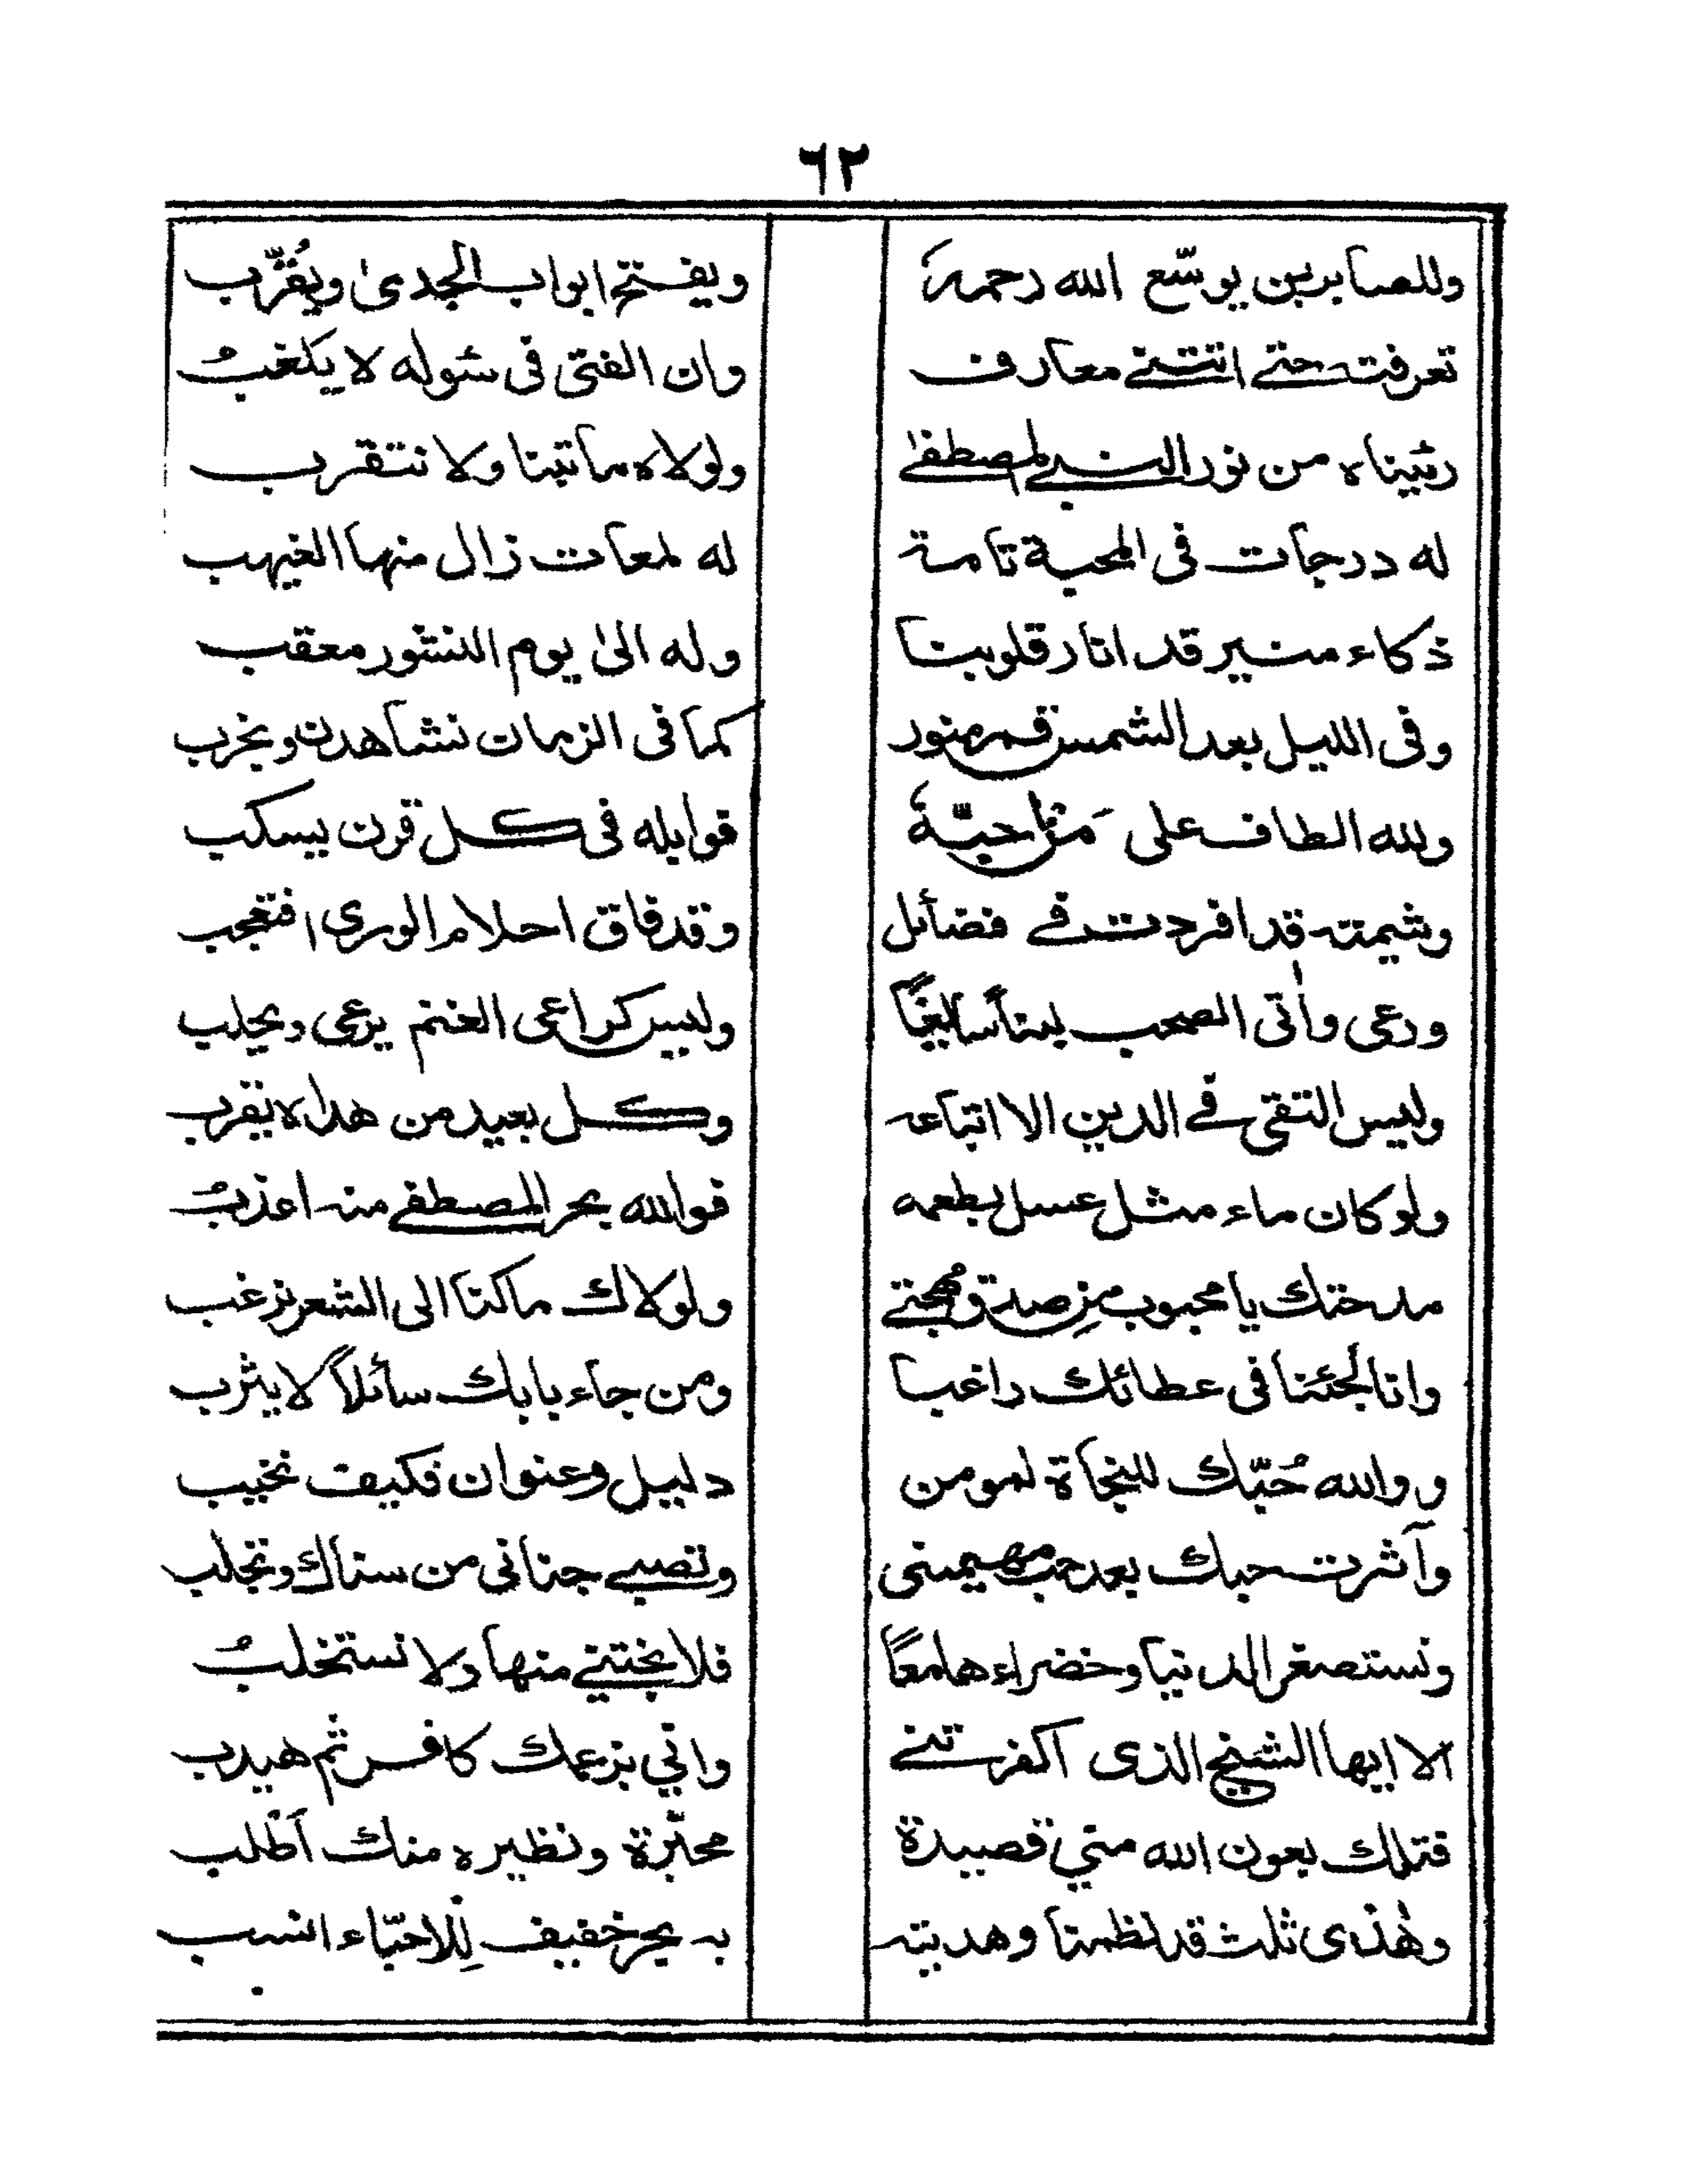 ٦٢
وللصابرين يوسّع الله رحمهُ ويفتح ابواب الجدىٰ ويُقرّب
تعرفت حتى اتتني معارف وان الفتى فى سئوله لا يلغبُ
رئيناه من نور النبي المصطفىٰ ولولاه ما تبنا ولا نتقرب
له درجات فى المحبة تامة له لمعات زال منها الغيهب
ذكاء منير قد انار قلوبنا وله الىٰ يوم النشور معقب
وفى الليل بعد الشمس قمر منور كما فى الزمان نشاهدن ونجرب
ولله الطاف على من احبّهٗ فوابله فى كل قرن يسكب
وشيمته قد افردت في فضائل وقد فاق احلام الورى افتعجب
ورعى واٰتى الصحب لبناً سائغاً وليس كراعى الغنم يرعى ويحلب
وليس التقى في الدين الا اتباعه وكل بعيد من هداه يقرب
ولو كان ماء مثل عسل بطعمه فوالله بحر المصطفى منه اعذبُ
مدحتك يا محبوب من صدق مهجتي ولولاك ما كنا الى الشعر نرغب
وانا لجئنا فى عطائك راغبا ومن جاء بابك سائلاً لا يثرب
ووالله حُبّك للنجاة لمومن دليل وعنوان فكيف نخيب
وآثرت حبك بعد حب مهيمنى وتصبي جنانى من سناك وتجلب
ونستصغر الدنيا وخضراءها معًا فلا نجتني منها ولا نستخلبُ
الا ايها الشيخ الذى اكفرتني واني بزعمك كافر ثم هيدب
فتلك بعون الله مني قصيدة محبّرة ونظيره منك اَطلب
وهٰذى ثلث قد نظمنا وهدبته به بحر خفيف لِلاحبّاء انسب